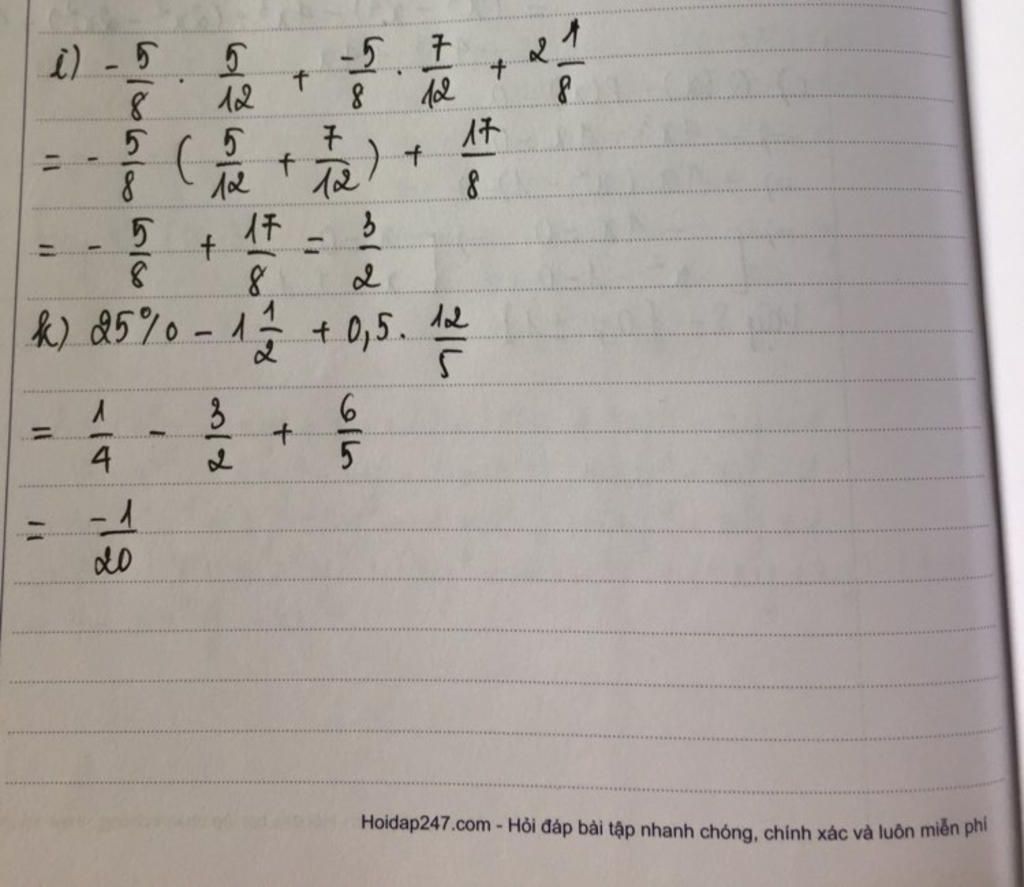 i) -5/8 . 5/12 + -5/8 . 7/12 + 2 1/8
= - 5/8 ( 5/12 + 7/12 ) + 17/8
= - 5/8 + 17/8 = 3/2
k) 25% - 1 1/2 + 0,5 . 12/5
= 1/4 - 3/2 + 6/5
= -1/20
Hoidap247.com - Hỏi đáp bài tập nhanh chóng, chính xác và luôn miễn phí